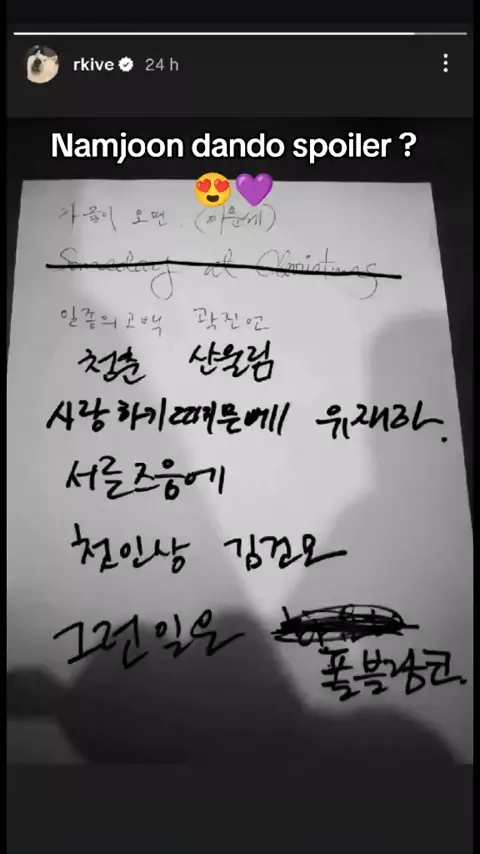 rkive 24 h
Namjoon dando spoiler ?
😍💜
가을이 오면. (이문세)
Someday at Christmas
일종의고백 곽진언
청춘 산울림
사랑하기때문에 유재하.
서른즈음에
첫인상 김건모
그런일은
폴블랑코.